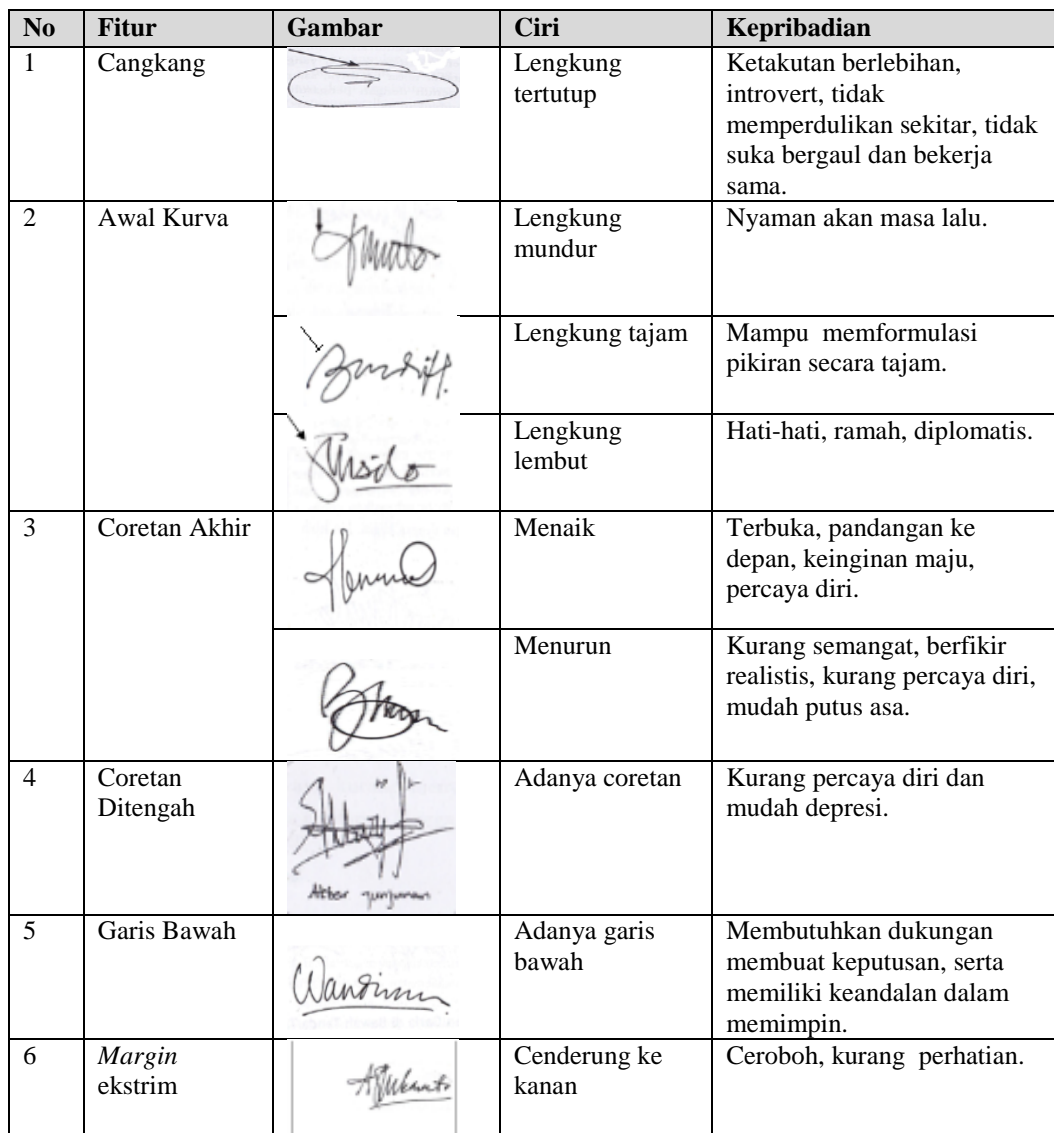 No Fitur Gambar Ciri Kepribadian
1 Cangkang Lengkung
tertutup
Ketakutan berlebihan,
introvert, tidak
memperdulikan sekitar, tidak
suka bergaul dan bekerja
sama.
2 Awal Kurva Lengkung
mundur
Nyaman akan masa lalu.
Lengkung tajam
Mampu memformulasi
pikiran secara tajam.
Lengkung
lembut
Hati-hati, ramah, diplomatis.
3 Coretan Akhir Menaik
Terbuka, pandangan ke
depan, keinginan maju,
percaya diri.
Menurun
Kurang semangat, berfikir
realistis, kurang percaya diri,
mudah putus asa.
4 Coretan
Ditengah
Adanya coretan
Kurang percaya diri dan
mudah depresi.
5 Garis Bawah
Wandiman
Adanya garis
bawah
Membutuhkan dukungan
membuat keputusan, serta
memiliki keandalan dalam
memimpin.
6 Margin
ekstrim
Cenderung ke
kanan
Ceroboh, kurang perhatian.